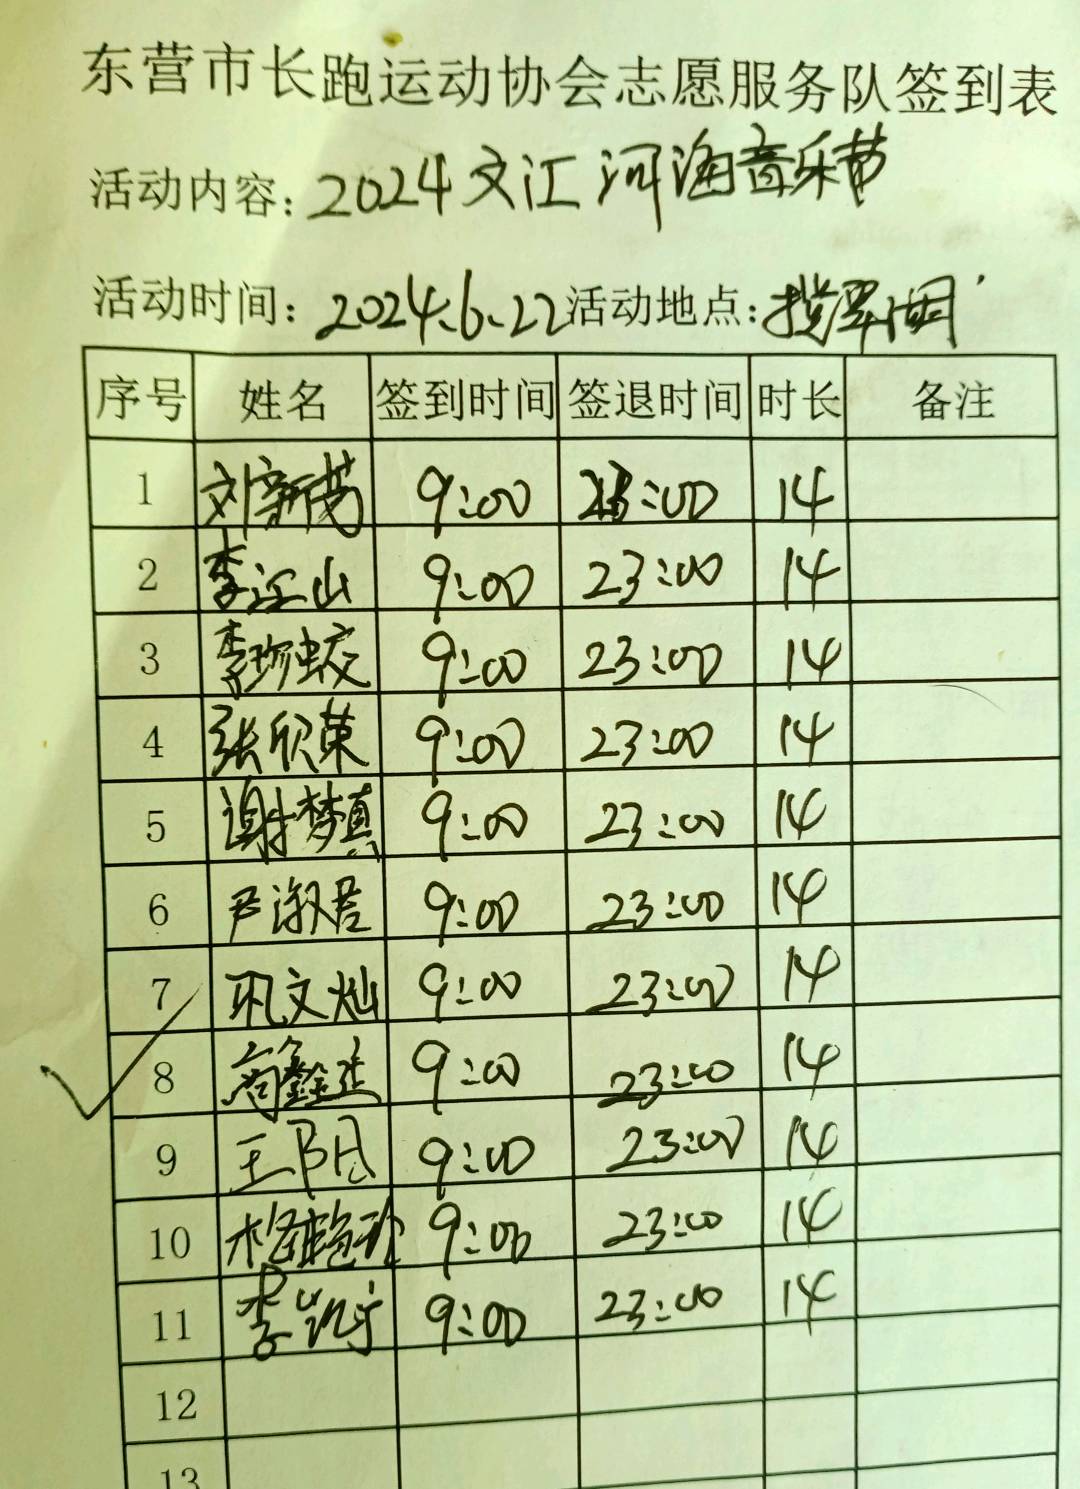 东营市长跑运动协会志愿服务队签到表
活动内容：2024文汇河海音乐节
活动时间：2024.6.22 活动地点：揽翠湖
序号 姓名 签到时间 签退时间 时长 备注
1 刘新芳 9:00 23:00 14
2 李江山 9:00 23:00 14
3 李珍蛟 9:00 23:00 14
4 张欣荣 9:00 23:00 14
5 谢梦真 9:00 23:00 14
6 尹淑君 9:00 23:00 14
7 巩文灿 9:00 23:00 14
8 9:00 23:00 14
9 王阳 9:00 23:00 14
10 9:00 23:00 14
11 李凯宁 9:00 23:00 14
12
13